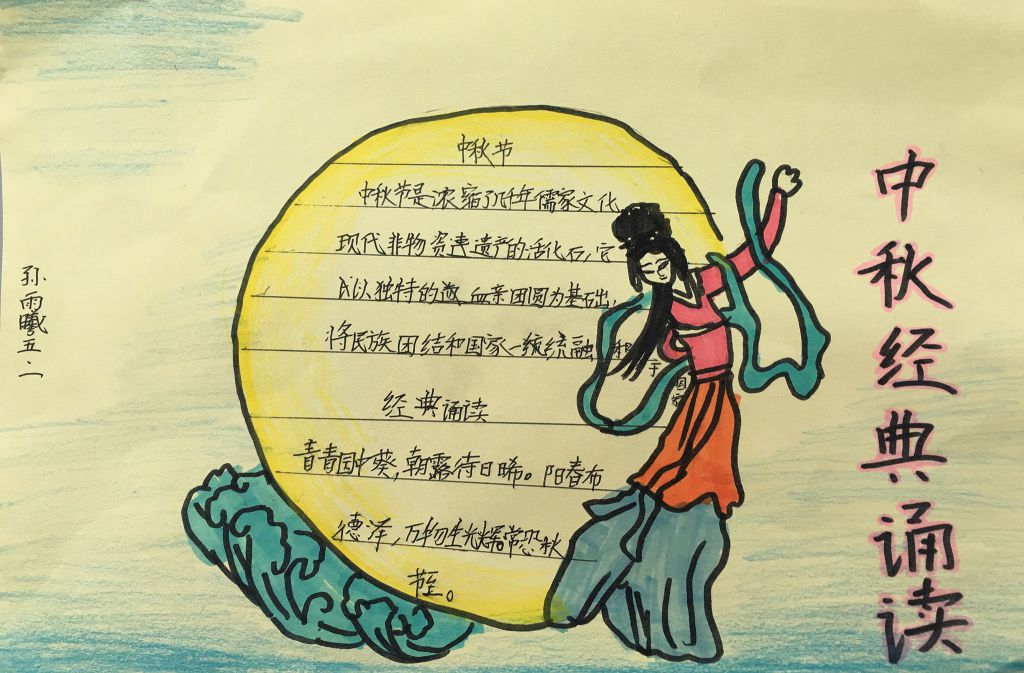 中秋节
中秋节是浓缩了几千年儒家文化
现代非物资遗产的活化石,它
以独特的 血亲团圆为基础,
将民族团结和国家一统统融 和
于
国家
经典诵读
青青园中葵,朝露待日晞。阳春布
德泽,万物生光辉常恐秋
节至。
中秋经典诵读
孙雨曦五.二